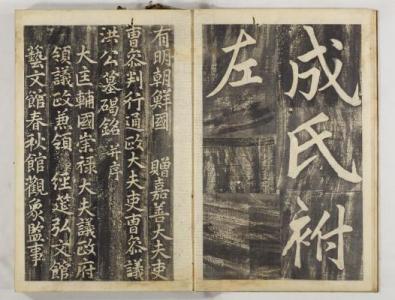 成氏祔
左
有明朝鮮國　贈嘉善大夫吏
曹參判行通政大夫吏曹參議
洪公墓碣銘 并序
大匡輔國崇祿大夫議政府
領議政兼領　經筵弘文館
藝文館春秋館觀象監事